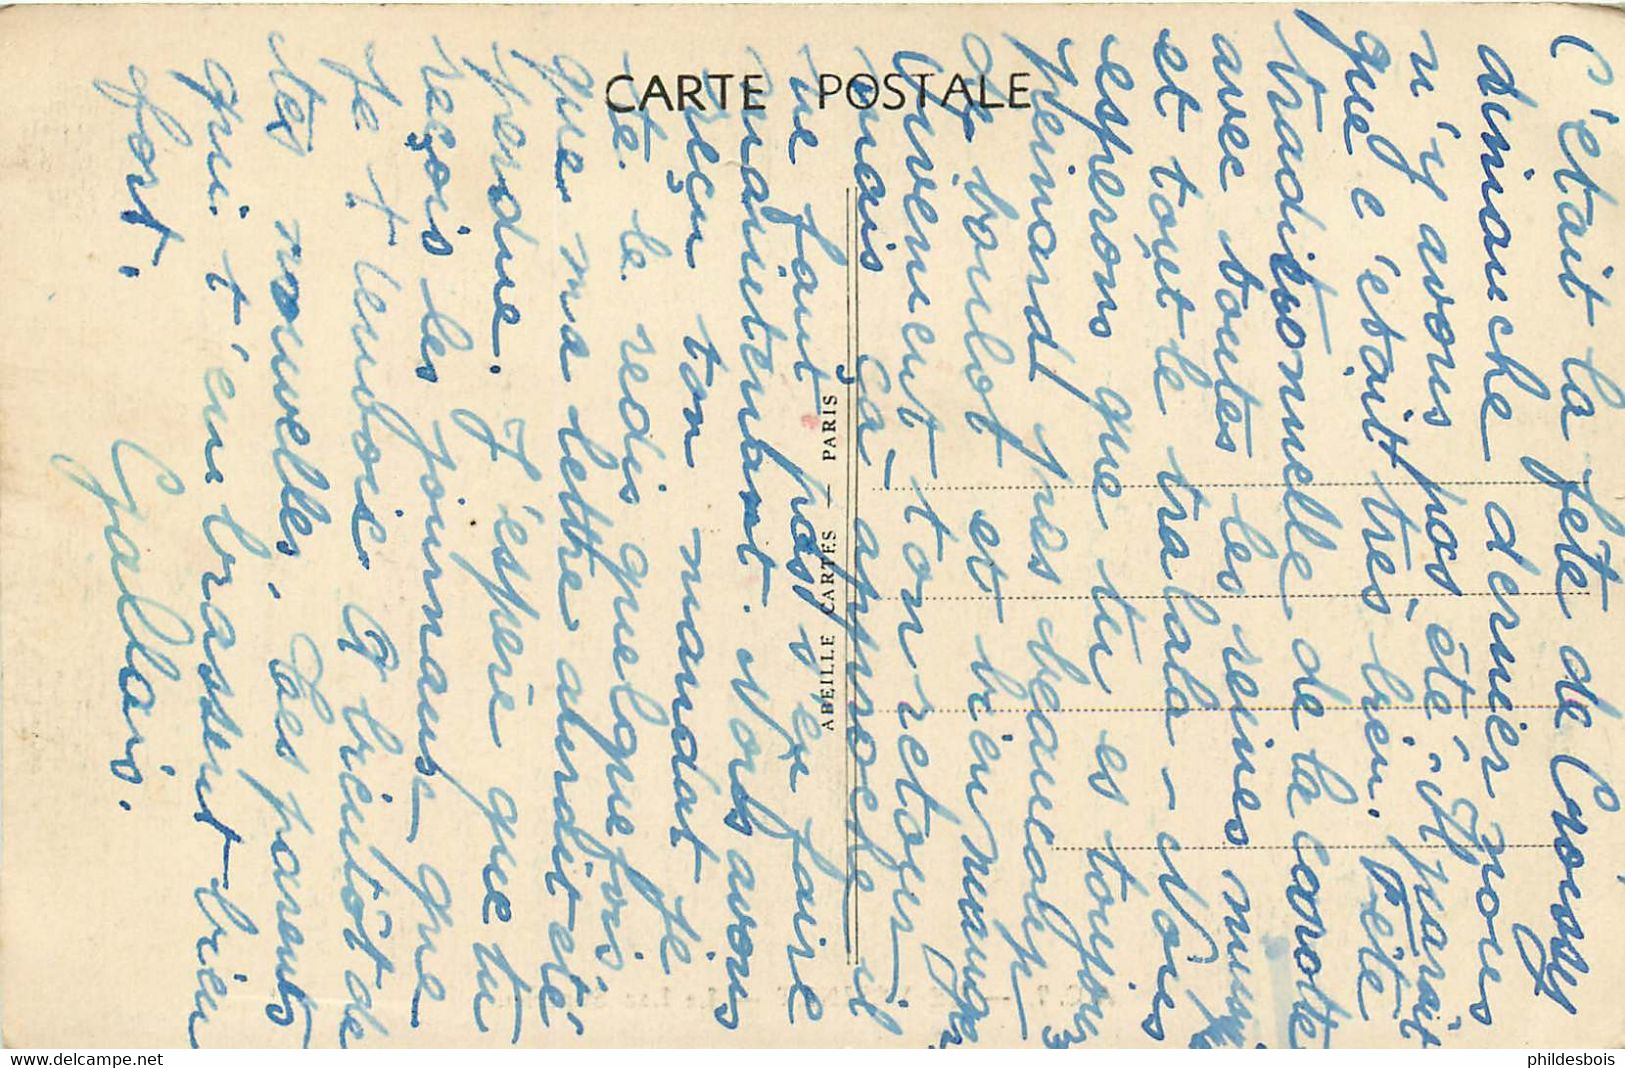 CARTE POSTALE
ABEILLE CARTES — PARIS
C'était la fête de Croissy
dimanche dernier nous
n'y avons pas été. Il parait
que c'était très bien. Fête
traditionnelle de la Carotte
avec toutes les reines
et tout le tralala - Nous
esperons que tu es toujours
peinard pas beaucoup
de boulot et bien manger
Vivement ton retour
mais ça approche il
ne faut pas s'en faire
maintenant. Nous avons
reçu ton mandat je
te le redis quelquefois
que ma lettre aurait été
perdue. J'espère que tu
reçois les journaux que
je t'envoie. A bientôt de
tes nouvelles. Tes parents
qui t'embrassent bien
fort.
Gallais.
phildesbois